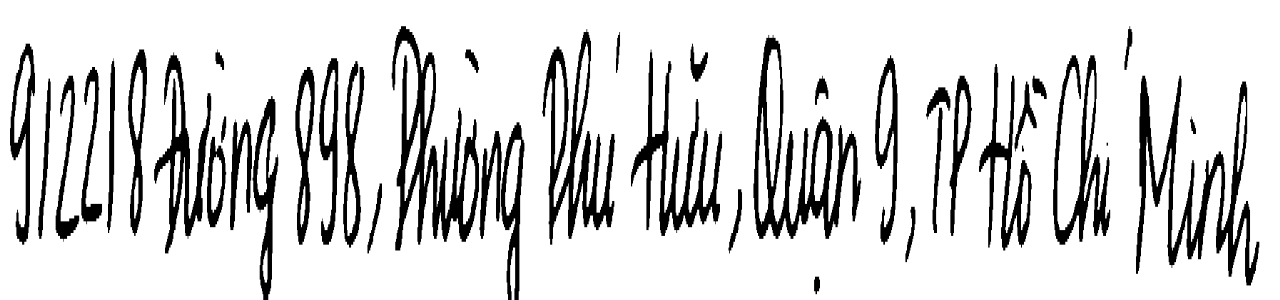 9/22/8 Đường 898, Phường Phú Hữu, Quận 9, TP Hồ Chí Minh